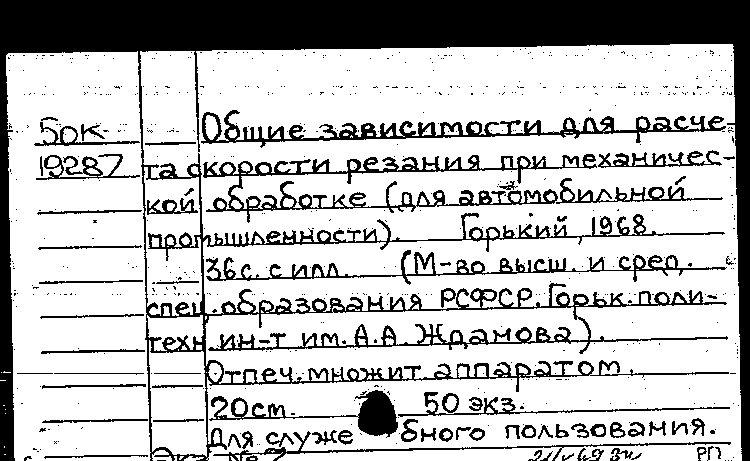 5ок Общие зависимости для расче-
19287 та скорости резания при механичес-
кой обработке (для автомобильной
промышленности). Горький, 1968.
36с. с илл. (М-во высш. и сред.
спец. образования РСФСР. Горьк. поли-
техн. ин-т им. А.А. Жданова).
Отпеч. множит. аппаратом.
20см. 50 экз.
Для служебного пользования.
Экз. №
РП